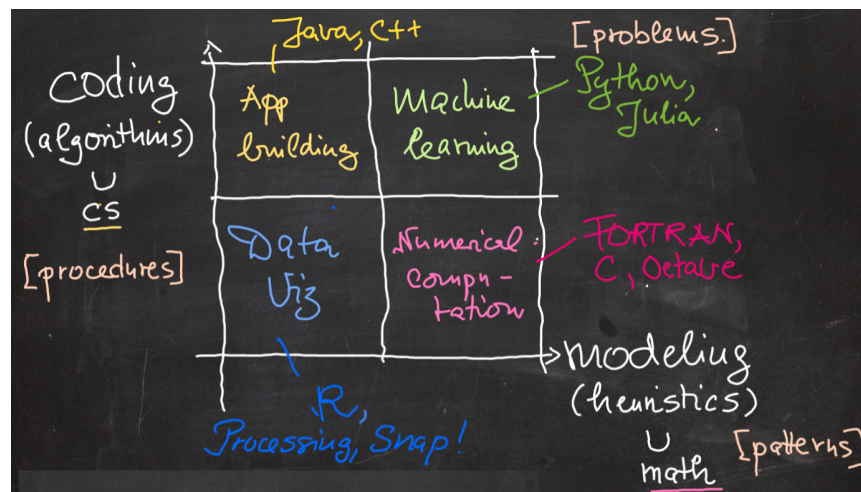 Java, C++
[problems.]
coding
(algorithms)
∪
CS
[procedures]
App
building
Machine
learning
Python,
Julia
Data
Viz
Numerical
Compu-
tation
FORTRAN,
C, Octave
modeling
(heuristics)
∪
math
[patterns]
R,
Processing, Snap!